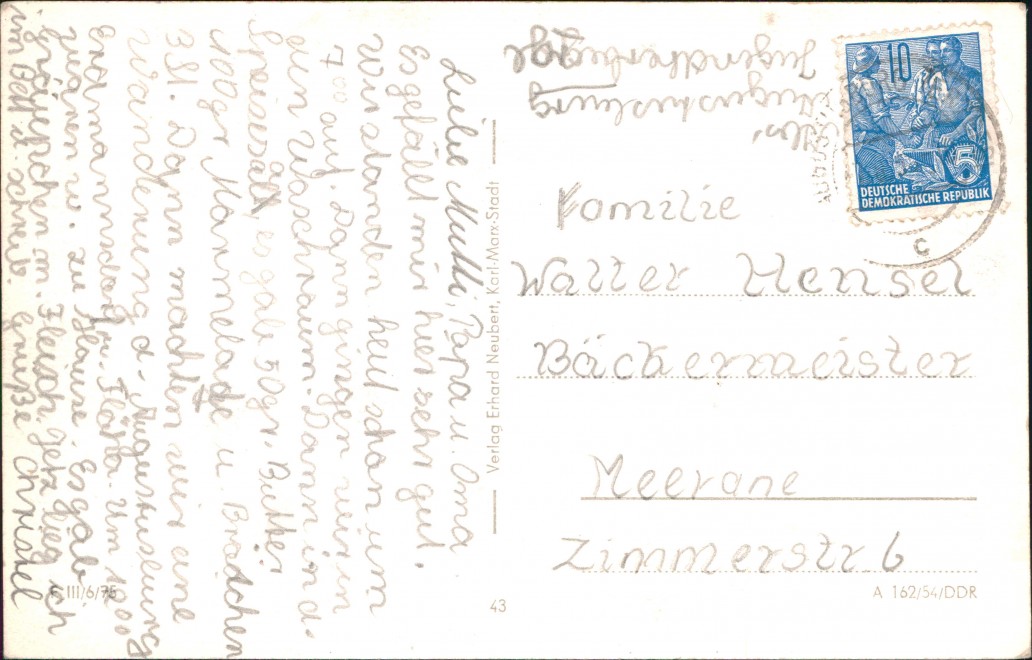 Liebe Mutti, Papa u. Oma
Es gefält mir hier sehr gut.
Wir standen heut schon um
7⁰⁰ auf. Dann gingen wir in
den Waschraum. Dann in d.
Speisesaal, es gab 50gr. Butter
100gr Marmelade u. Brödchen
3 St. Dann machten wir eine
Wanderung d. Augustusburg
Erdmannsdorf Flöha. Um 12⁰⁰
waren w. zu Hause. Es gab
m. Fleisch. Jetz lieg ich
im Bett u. schreib. Grüße Christel
Verlag Erhard Neubert, Karl-Marx-Stadt
III/6/75
43
A 162/54/DDR
Augustusburg
Jugendherberge
10
5
DEUTSCHE
DEMOKRATISCHE REPUBLIK
c
Familie
Walter Hensel
Bäckermeister
Meerane
Zimmerstr. 6